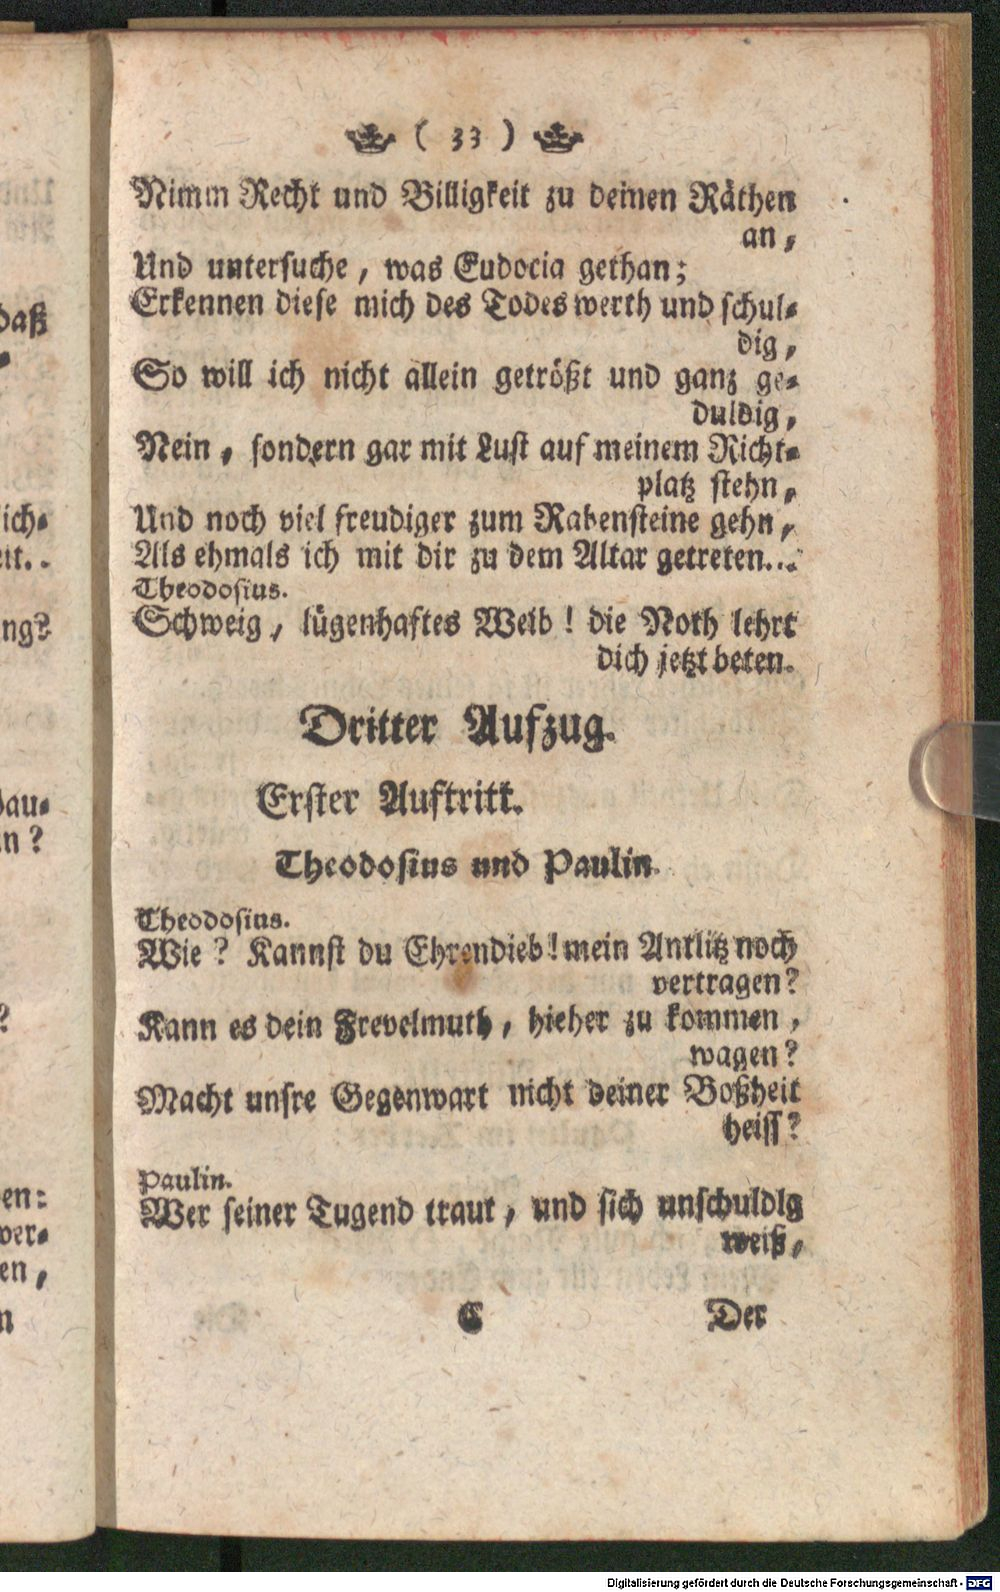 daß
ich-
ng?
Dau-
n?
?
en:
ver-
en,
n
( 33 )
Nimm Recht und Billigkeit zu deinen Räthen
an,
Und untersuche, was Eudocia gethan;
Erkennen diese mich des Todes werth und schul-
dig,
So will ich nicht allein getrößt und ganz ge-
duldig,
Nein, sondern gar mit Lust auf meinem Richt-
platz stehn,
Und noch viel freudiger zum Rabensteine gehn,
Als ehmals ich mit dir zu dem Altar getreten...
Theodosius.
Schweig, lügenhaftes Weib! die Noth lehrt
dich jetzt beten.
Dritter Aufzug.
Erster Auftritt.
Theodosius und Paulin.
Theodosius.
Wie? Kannst du Ehrendieb! mein Antlitz noch
vertragen?
Kann es dein Frevelmuth, hieher zu kommen,
wagen?
Macht unsre Gegenwart nicht deiner Boßheit
heiss?
Paulin.
Wer seiner Tugend traut, und sich unschuldig
weiß,
C
Der
Digitalisierung gefördert durch die Deutsche Forschungsgemeinschaft - DFG